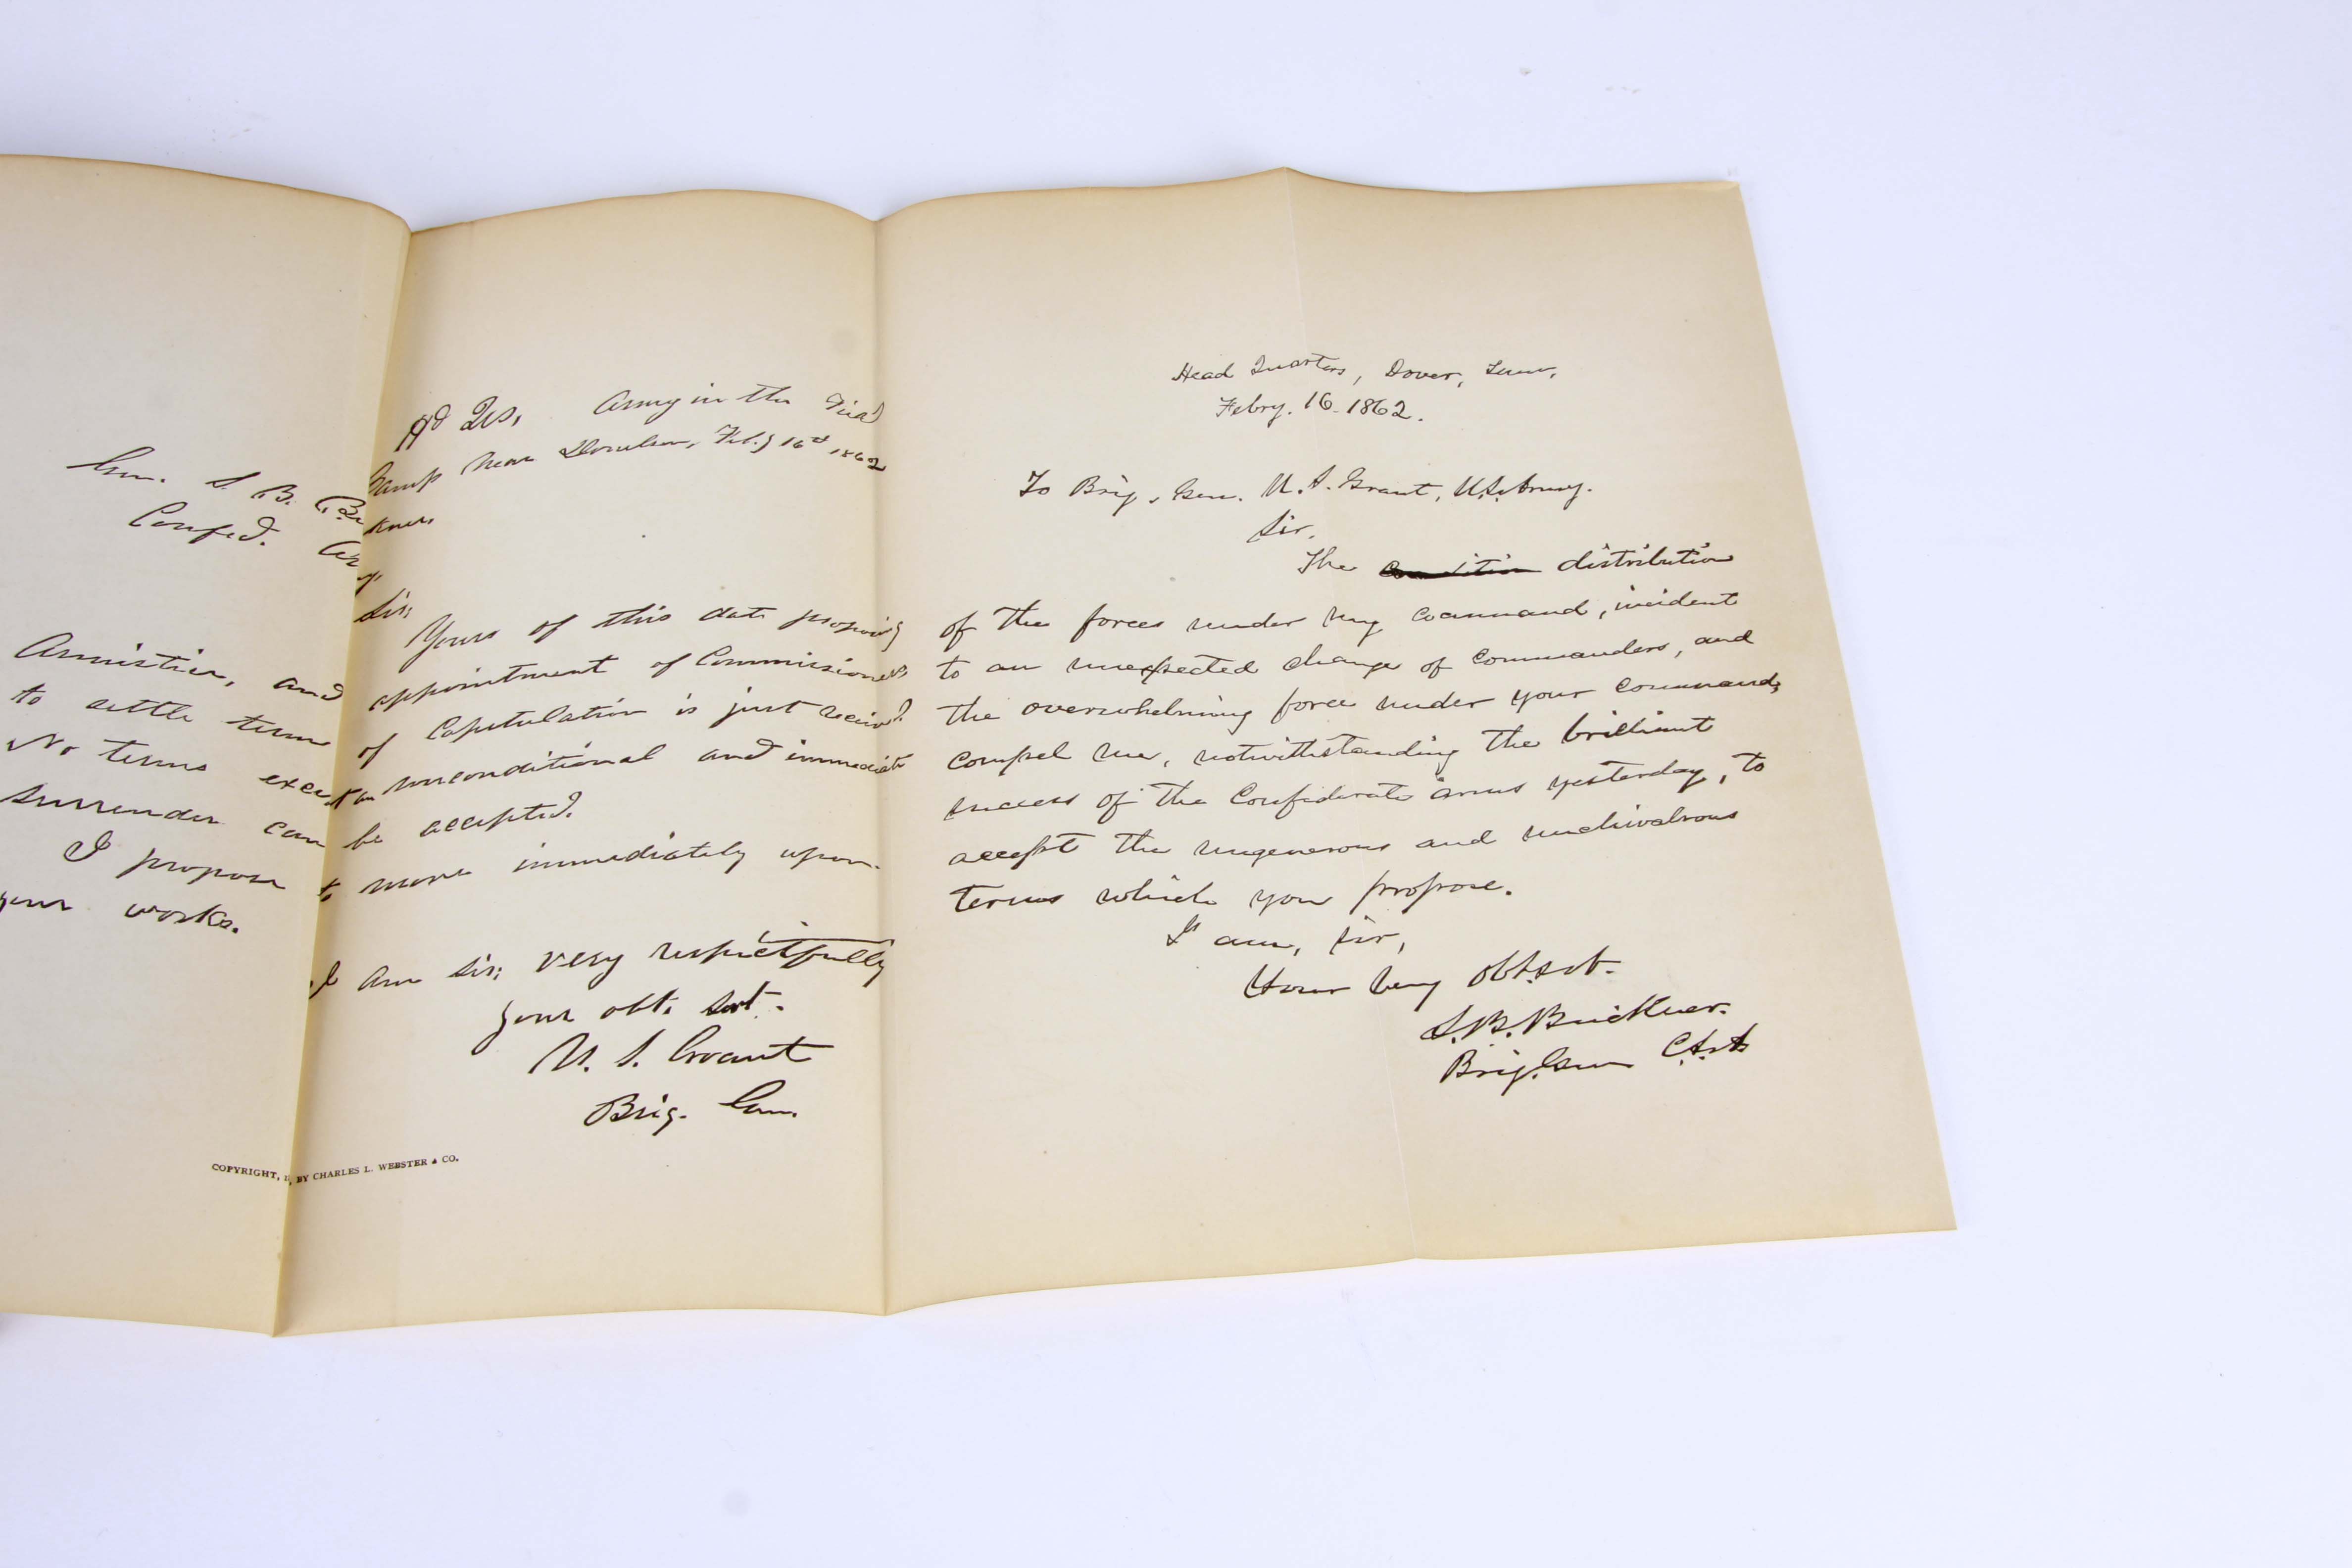 Hd Qrs, Army in the Field
Camp Near Donelson, Feb.y 16th 1862
Gen. S. B. Buckner
Confed. Army
Sir;
Yours of this date proposing
Armistice, and appointment of Commissioners
to settle terms of Capitulation is just received.
No terms except an unconditional and immediate
surrender can be accepted.
I propose to move immediately upon
your works.
I am sir; very respectfully
your obt. svt.
U. S. Grant
Brig. Gen.
COPYRIGHT, BY CHARLES L. WEBSTER & CO.
Head Quarters, Dover, Tenn,
Febry. 16 1862.
To Brig. Gen. U. S. Grant, U.S. Army.
Sir,
The condition distribution
of the forces under my command, incident
to an unexpected change of commanders, and
the overwhelming force under your command,
compel me, notwithstanding the brilliant
success of the Confederate arms yesterday, to
accept the ungenerous and unchivalrous
terms which you propose.
I am, sir,
Your very obt. svt.
S. B. Buckner.
Brig. Gen C.S.A.